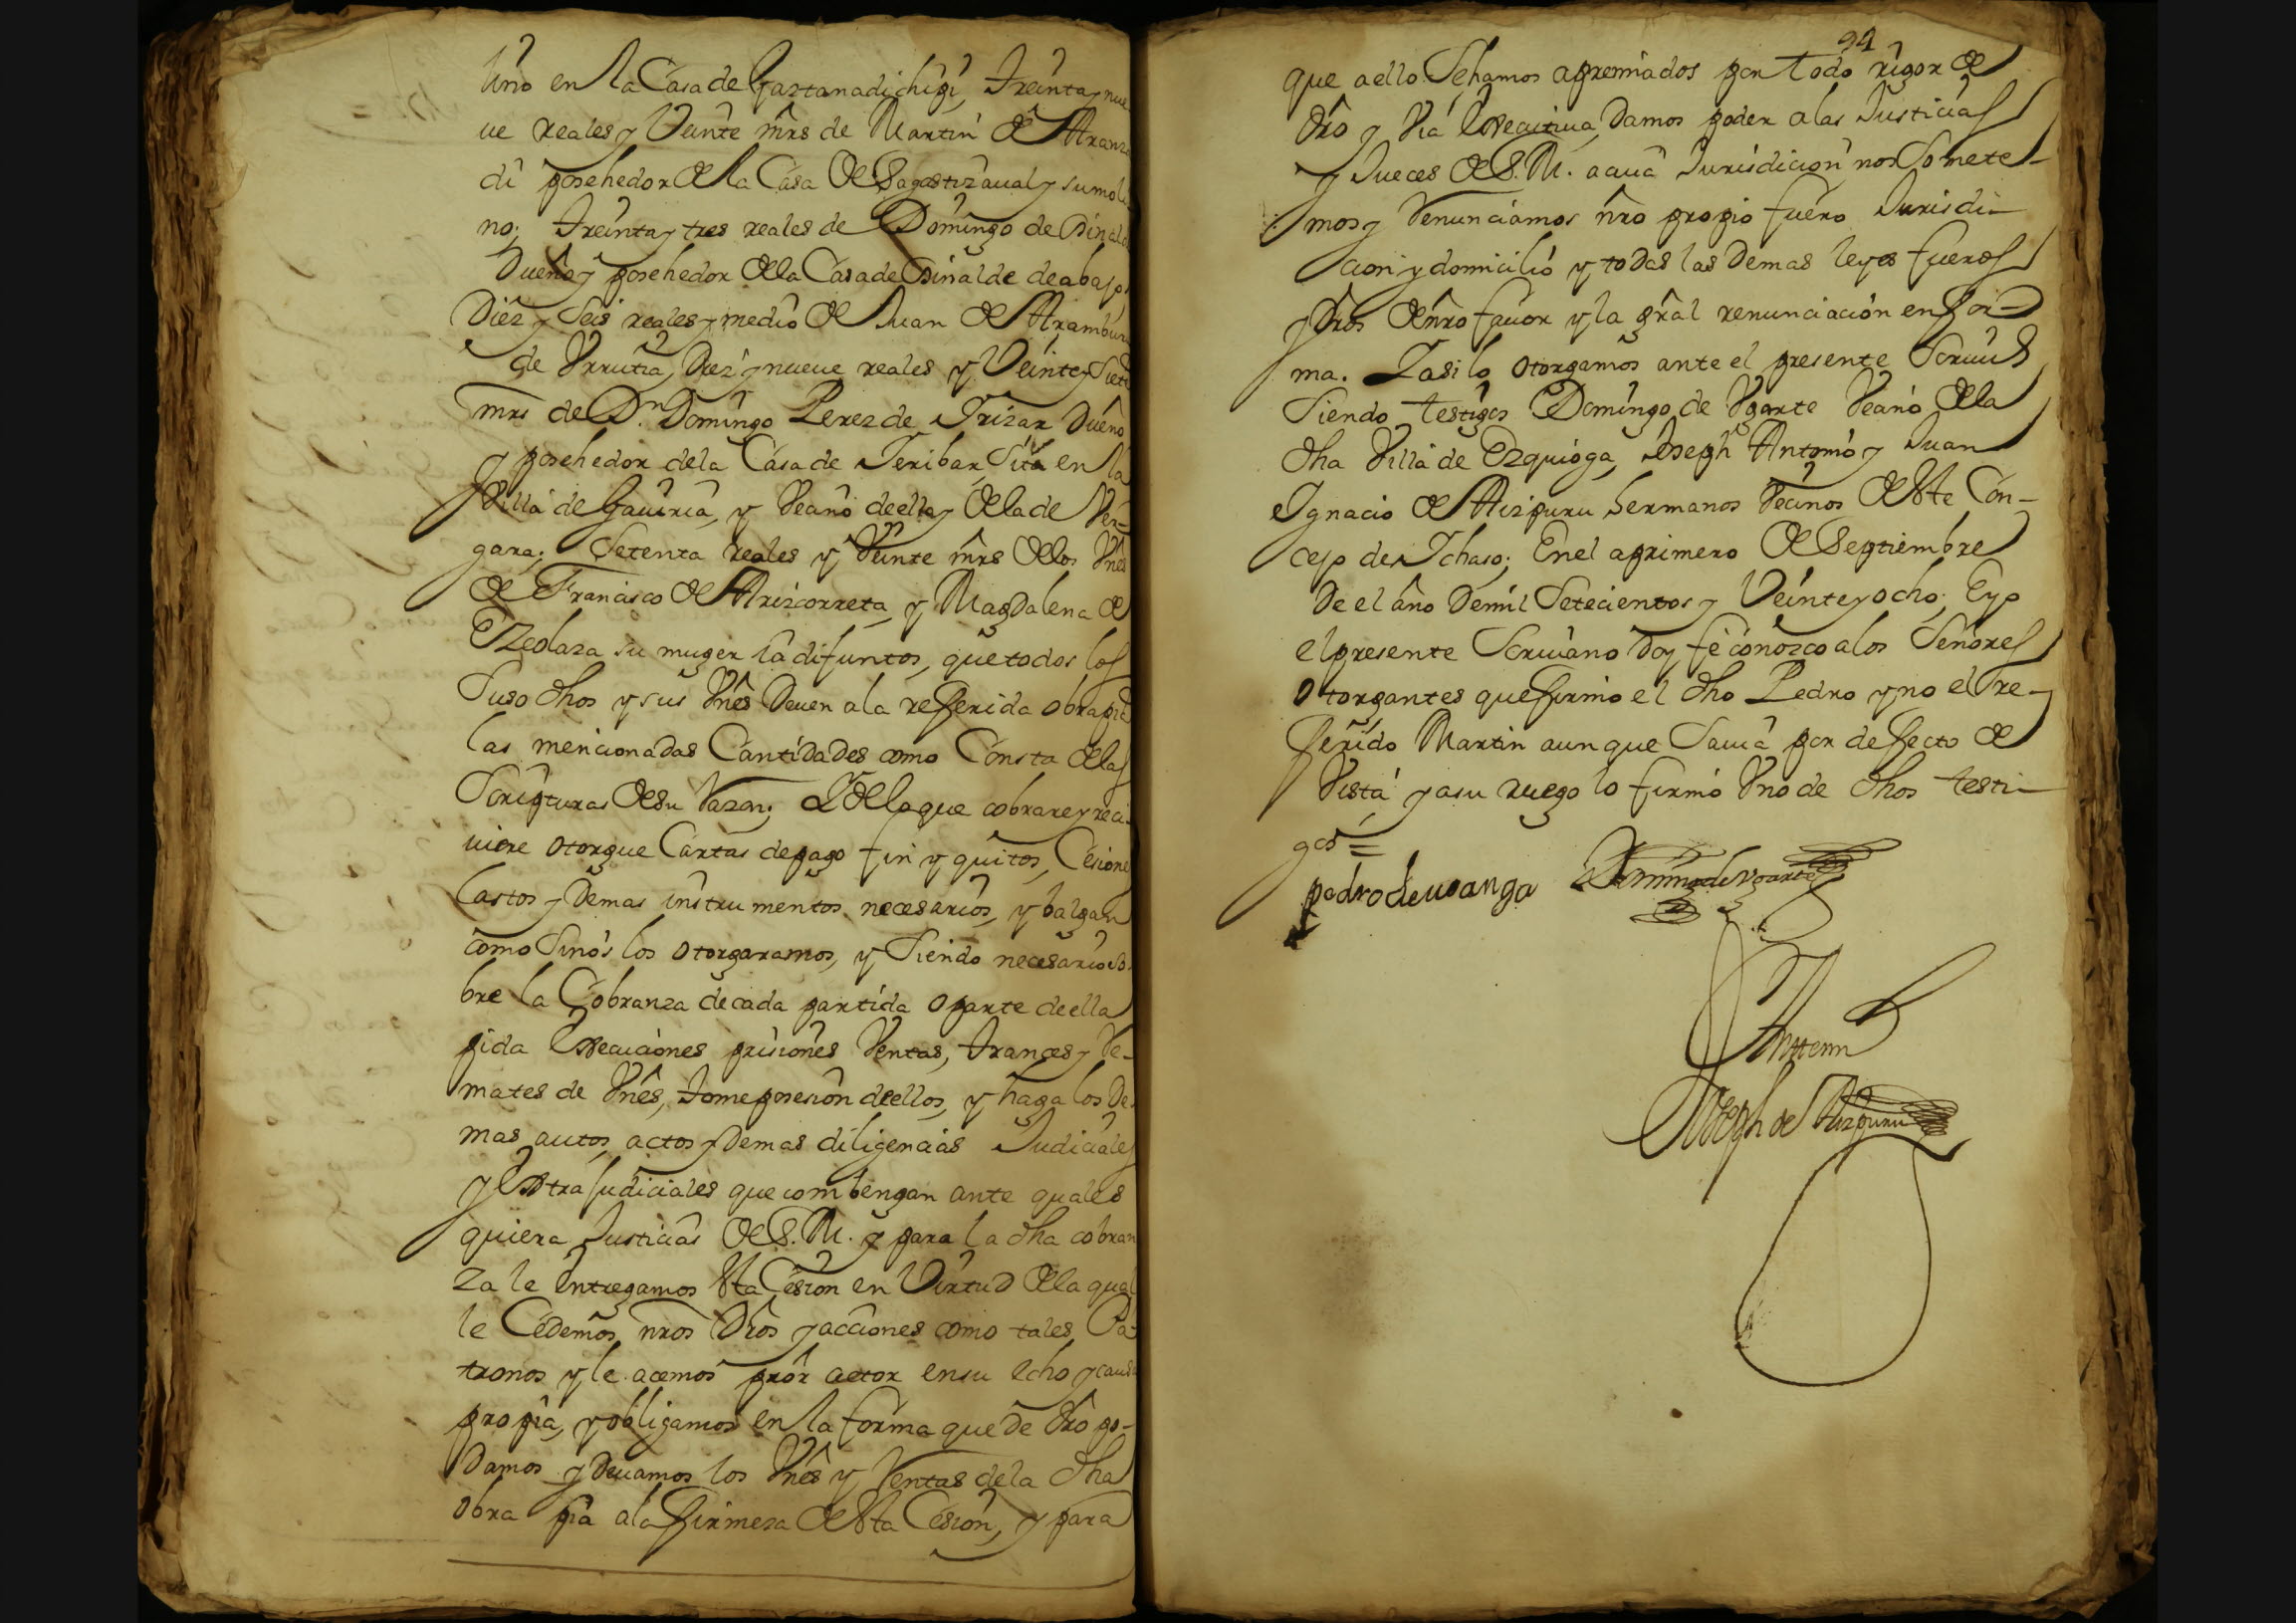 Uno en la Casa de Gaztanadichigi, Treinta y nue
ue reales y Veinte mrs de Martin de Aranza
di posehedor de la Casa de Sagastizaual y su moli
no; Treinta y tres reales de Domingo de
Dueño y posehedor de la Casa de de abajo
Diez y Seis reales y medio de Juan de Aramburu
de Vrrutia, Diez y nueue reales y Veinte y Siete
mrs de Dn. Domingo Perez de Irizar Dueño
y posehedor de la Casa de Jeribar Sita en la
Villa de Gauiria, y Vecino de ella y de la de Ver-
gara; Setenta reales y Veinte mrs de los Vnes
de Francisco de Arizcorreta, y Magdalena de
Ezeolaza su muger ia difuntos, que todos los
Suso dhos y sus Vnes Deuen a la referida obra pia
las mencionadas Cantidades como Consta de las
Scripturas de su Razon; Y de lo que cobrare y reci
uiere otorgue Cartas de pago fin y quitos, Cesione
lastos y Demas instrumentos necesarios, y balgan
como Si nos los otorgaramos, y Siendo necesario so
bre la Cobranza de cada partida o parte de ella
pida Execuciones prisiones Ventas, trances y Re-
mates de Vnes, tome posesion de ellos, y haga los De
mas autos, actos y Demas diligencias Judiciales
y Extrajudiciales que combengan ante quales
quiera Justicias de S. M. y para la dha cobran
za le entregamos Esta Cesion en Virtud de la qual
le Cedemos nros Dros y acciones como tales Pa-
tronos y le acemos pror actor en su echo y causa
propia, y obligamos en la forma que de Dro po-
damos y Deuamos los Vnes y Rentas de la dha
obra pia a la firmeza de Esta Cesion, y para
94
que a ello Sehamos apremiados por todo rigor de
Dro y Via Executiua, Damos poder a las Justicias
y Jueces de S. M. a cuia Jurisdicion nos Somete-
mos y Renunciamos nro propio fuero Jurisdi-
cion y domicilio y todas las Demas leyes fueros
y Dros de nro fauor y la gral renunciacion en for-
ma. Y asi lo otorgamos ante el presente Scriuo
Siendo testigos Domingo de Vgarte Vecino de la
dha Villa de Ezquioga, Joseph Antonio y Juan
Ignacio de Aizpuru hermanos Vecinos de Este Con-
cejo de Ichaso; En el a primero de Septiembre
De el año De mil Setecientos y Veinte y ocho; E yo
el presente Scriuano Doy fe conozco a los Señores
otorgantes que firmo el dho Pedro y no el re-
ferido Martin aunque Sauia por defecto de
Vista y a su ruego lo firmó Vno de dhos testi-
gos=
pedro de usanga Domingo de Vgarte
Antemi
Joseph de Aizpuru